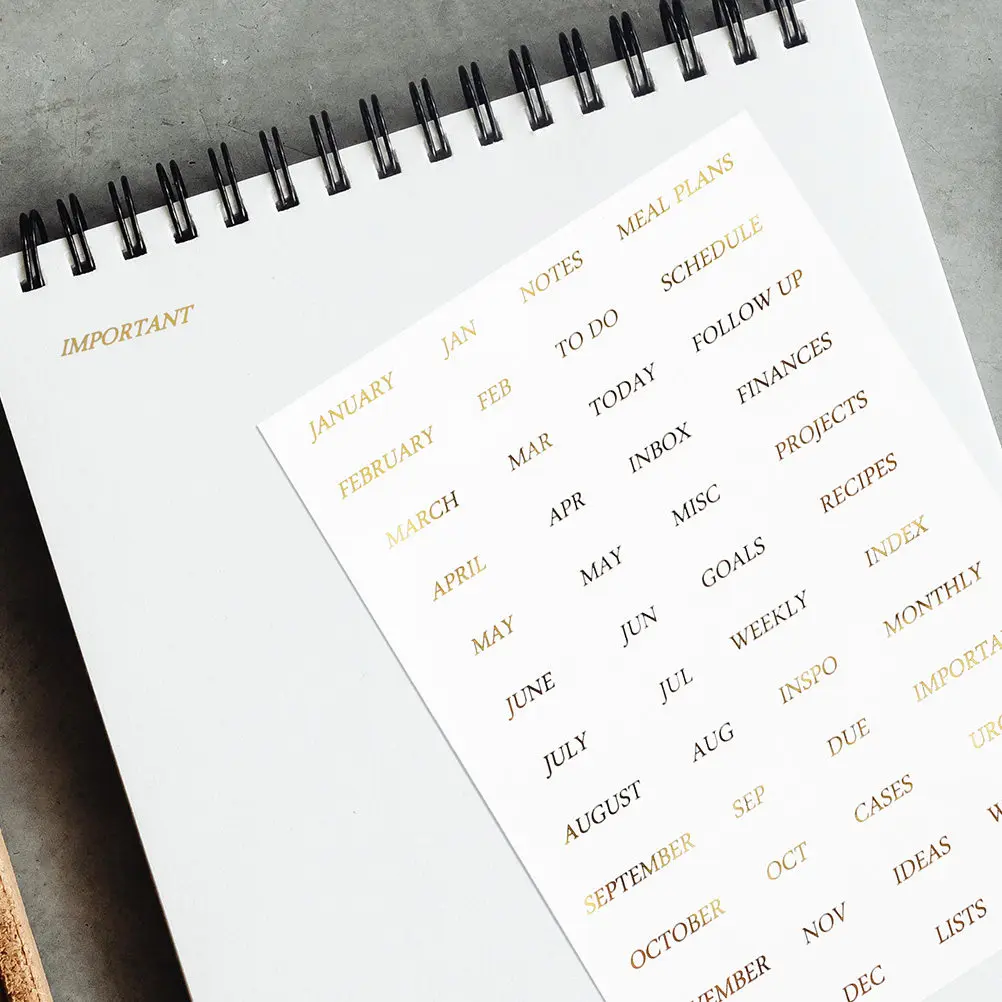 IMPORTANT
JANUARY JAN NOTES MEAL PLANS
FEBRUARY FEB TO DO SCHEDULE
MARCH MAR TODAY FOLLOW UP
APRIL APR INBOX FINANCES
MAY MAY MISC PROJECTS
JUNE JUN GOALS RECIPES
JULY JUL WEEKLY INDEX
AUGUST AUG INSPO MONTHLY
SEPTEMBER SEP DUE IMPORTA
OCTOBER OCT CASES
VEMBER NOV IDEAS
DEC LISTS